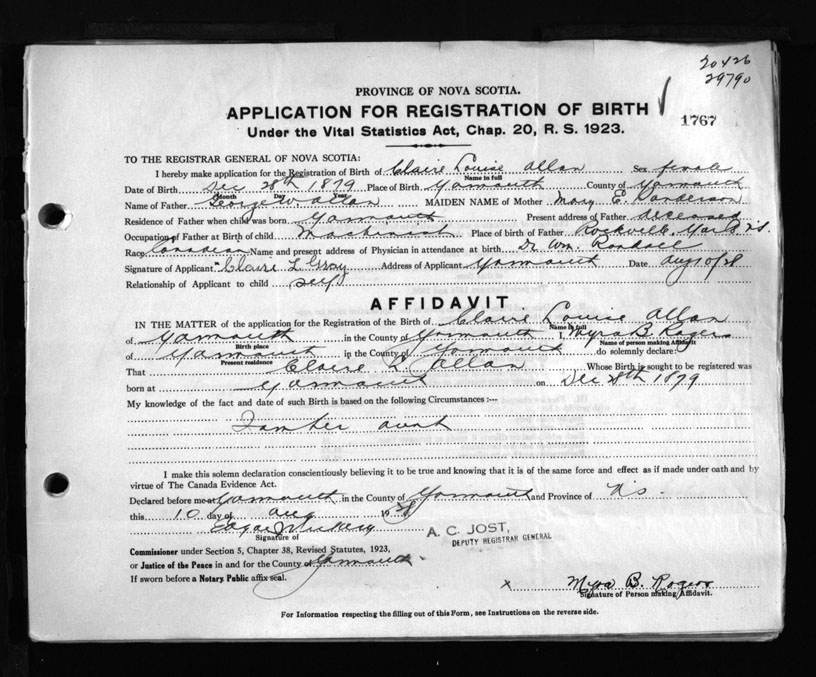 20426
29790
PROVINCE OF NOVA SCOTIA.
APPLICATION FOR REGISTRATION OF BIRTH
1767
Under the Vital Statistics Act, Chap. 20, R. S. 1923.
TO THE REGISTRAR GENERAL OF NOVA SCOTIA:
I hereby make application for the Registration of Birth of Claire Louise Allan Sex female
Name in full
Date of Birth Dec 28th 1879 Place of Birth Yarmouth County of Yarmouth
Month Day Year
Name of Father George W Allan MAIDEN NAME of Mother Mary E.
Residence of Father when child was born Yarmouth Present address of Father deceased
Occupation of Father at Birth of child Machinist Place of birth of Father Rockville Yar. Co N.S.
Race Canadian Name and present address of Physician in attendance at birth Dr Wm. Randall
Signature of Applicant Claire L Address of Applicant Yarmouth Date Aug 10/28
Relationship of Applicant to child self
AFFIDAVIT
IN THE MATTER of the application for the Registration of the Birth of Claire Louise Allan
Name in full
of Yarmouth in the County of Yarmouth I, Myra B. Rogers
Birth place Name of person making Affidavit
of Yarmouth in the County of Yarmouth do solemnly declare:
Present residence
That Claire L. Allan Whose Birth is sought to be registered was
born at Yarmouth on Dec 28th 1879
My knowledge of the fact and date of such Birth is based on the following Circumstances :—
I am her aunt
I make this solemn declaration conscientiously believing it to be true and knowing that it is of the same force and effect as if made under oath and by
virtue of The Canada Evidence Act.
Declared before me at Yarmouth in the County of Yarmouth and Province of N.S.
this 10 day of Aug 1928
Edgar
Signature of
A. C. JOST,
DEPUTY REGISTRAR GENERAL
Commissioner under Section 5, Chapter 38, Revised Statutes, 1923,
or Justice of the Peace in and for the County of Yarmouth
If sworn before a Notary Public affix seal.
x Myra B. Rogers
Signature of Person making Affidavit.
For Information respecting the filling out of this Form, see Instructions on the reverse side.